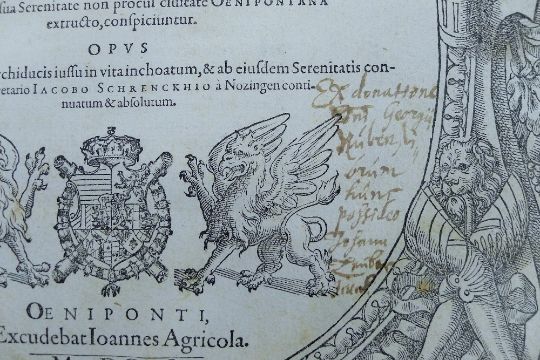 sua Serenitate non procul ciuitate OENIPONTANA
extructo, conspiciuntur.
OPVS
chiducis iussu in vita inchoatum, & ab eiusdem Serenitatis con-
retario IACOBO SCHRENCKHIO à Nozingen conti-
nuatum & absolutum.
Ex donatione
Georgij
orum
possideo
Johann
OENIPONTI,
Excudebat Ioannes Agricola.